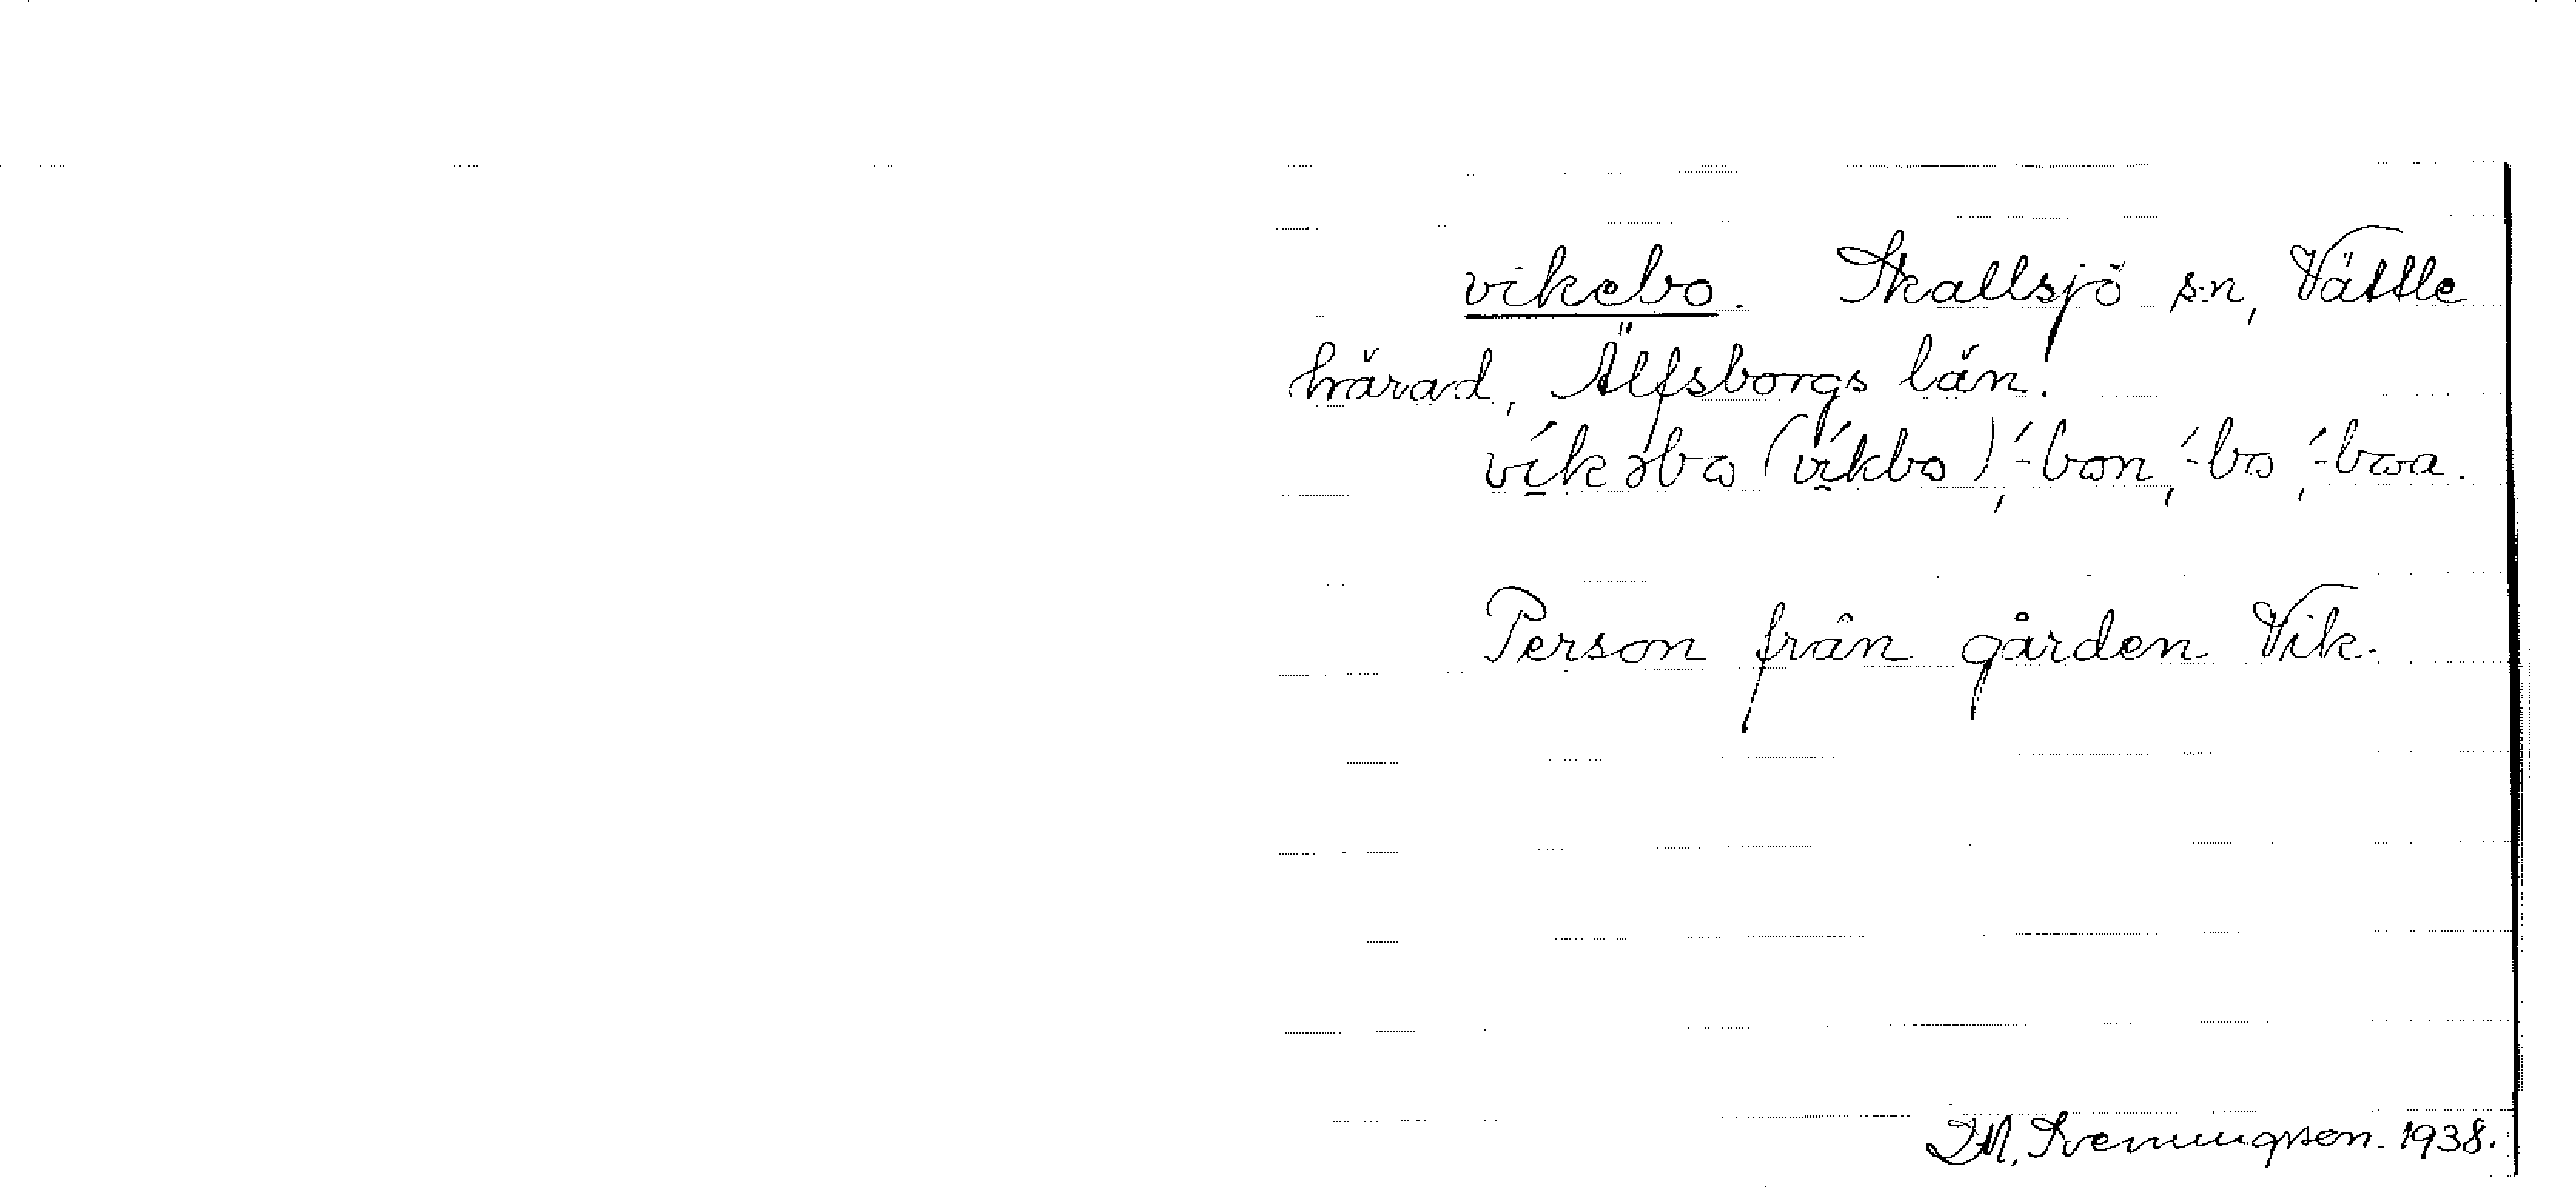 vikebo. Skallsjö s:n, Vättle
härad, Älfsborgs län.
víkəbω (víkbω), ´-bωn, ´-bω, ´-bωa.
Person från gården Vik.
D.M. Svenningson. 1938.